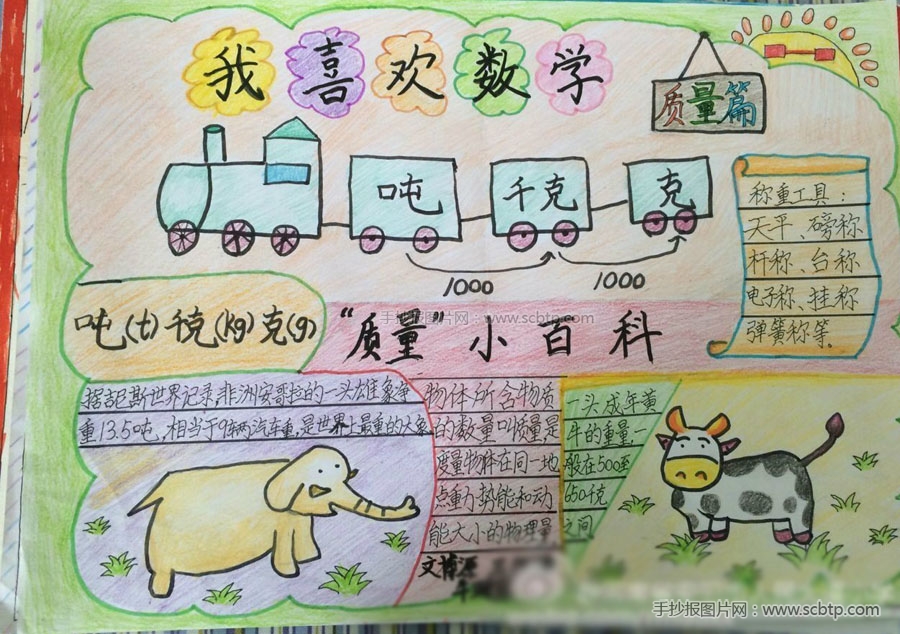 我喜欢数学
质量篇
吨
千克
克
1000
1000
称重工具：
天平、磅称
杆称、台称
电子称、挂称
弹簧称等。
吨(t)千克(kg)克(g)
"质量"小百科
手抄报图片网：www.scbtp.com
据吉尼斯世界记录,非洲安哥拉的一头雄象净
重13.5吨,相当于9辆汽车重,是世界上最重的大象
物体所含物质
的数量叫质量是
度量物体在同一地
点重力势能和动
能大小的物理量
一头成年黄
牛的重量一
般在500至
650千克
之间
文博源
手抄报图片网：www.scbtp.com